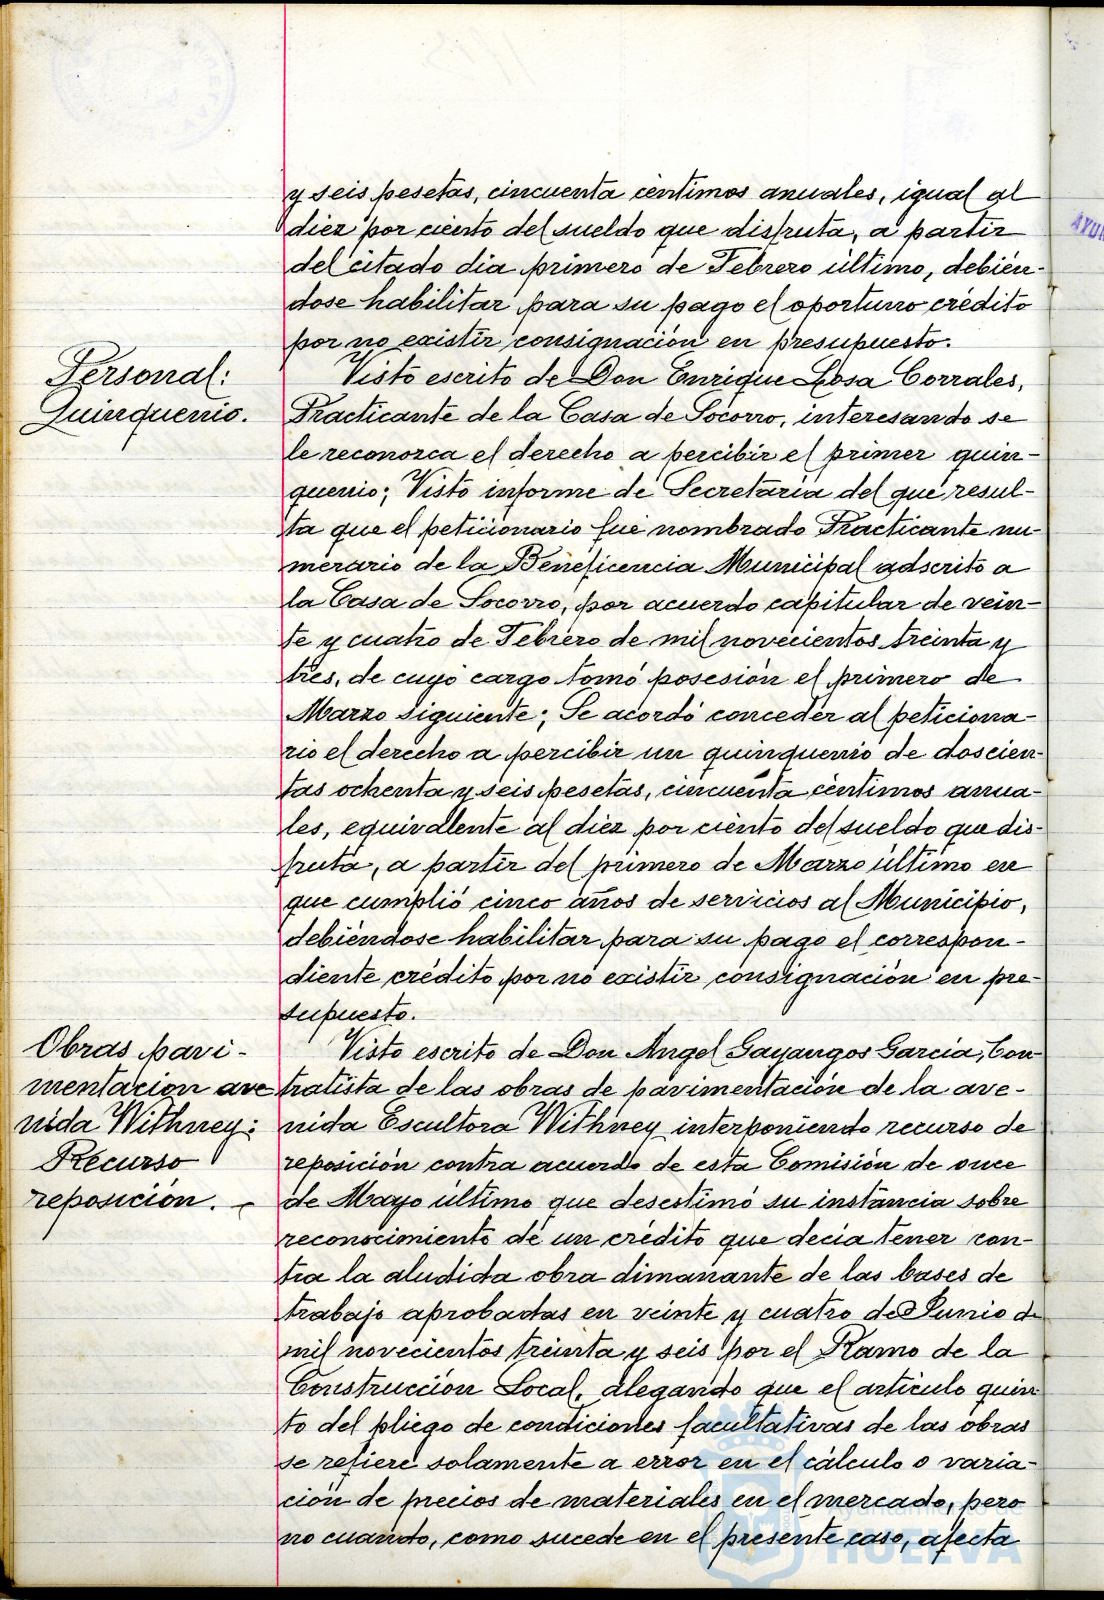 y seis pesetas, cincuenta centimos anuales, igual al
diez por ciento del sueldo que disfruta, a partir
del citado dia primero de Febrero último, debién-
dose habilitar para su pago el oportuno crédito
por no existir consignación en presupuesto.
Personal:
Quinquenio.
Visto escrito de Don Enrique Losa Corrales,
Practicante de la Casa de Socorro, interesando se
le reconozca el derecho a percibir el primer quin-
quenio; Visto informe de Secretaria del que resul-
ta que el peticionario fué nombrado Practicante nu-
merario de la Beneficencia Municipal adscrito a
la Casa de Socorro, por acuerdo capitular de vein-
te y cuatro de Febrero de mil novecientos treinta y
tres, de cuyo cargo tomó posesión el primero de
Marzo siguiente; Se acordó conceder al peticiona-
rio el derecho a percibir un quinquenio de doscien-
tas ochenta y seis pesetas, cincuenta céntimos anua-
les, equivalente al diez por ciento del sueldo que dis-
fruta, a partir del primero de Marzo último en
que cumplió cinco años de servicios al Municipio,
debiéndose habilitar para su pago el correspon-
diente crédito por no existir consignación en pre-
supuesto.
Obras pavi-
mentacion ave
nida Withney:
Recurso
reposición. -
Visto escrito de Don Angel Gayangos Garcia, Con-
tratista de las obras de pavimentación de la ave-
nida Escultora Withney interponiendo recurso de
reposición contra acuerdo de esta Comisión de once
de Mayo último que desestimó su instancia sobre
reconocimiento de un crédito que decia tener con-
tra la aludida obra dimanante de las bases de
trabajo aprobadas en veinte y cuatro de Junio de
mil novecientos treinta y seis por el Ramo de la
Construcción Local, alegando que el articulo quin-
to del pliego de condiciones facultativas de las obras
se refiere solamente a error en el cálculo o varia-
ción de precios de materiales en el mercado, pero
no cuando, como sucede en el presente caso, afecta
Ayuntamiento de
HUELVA